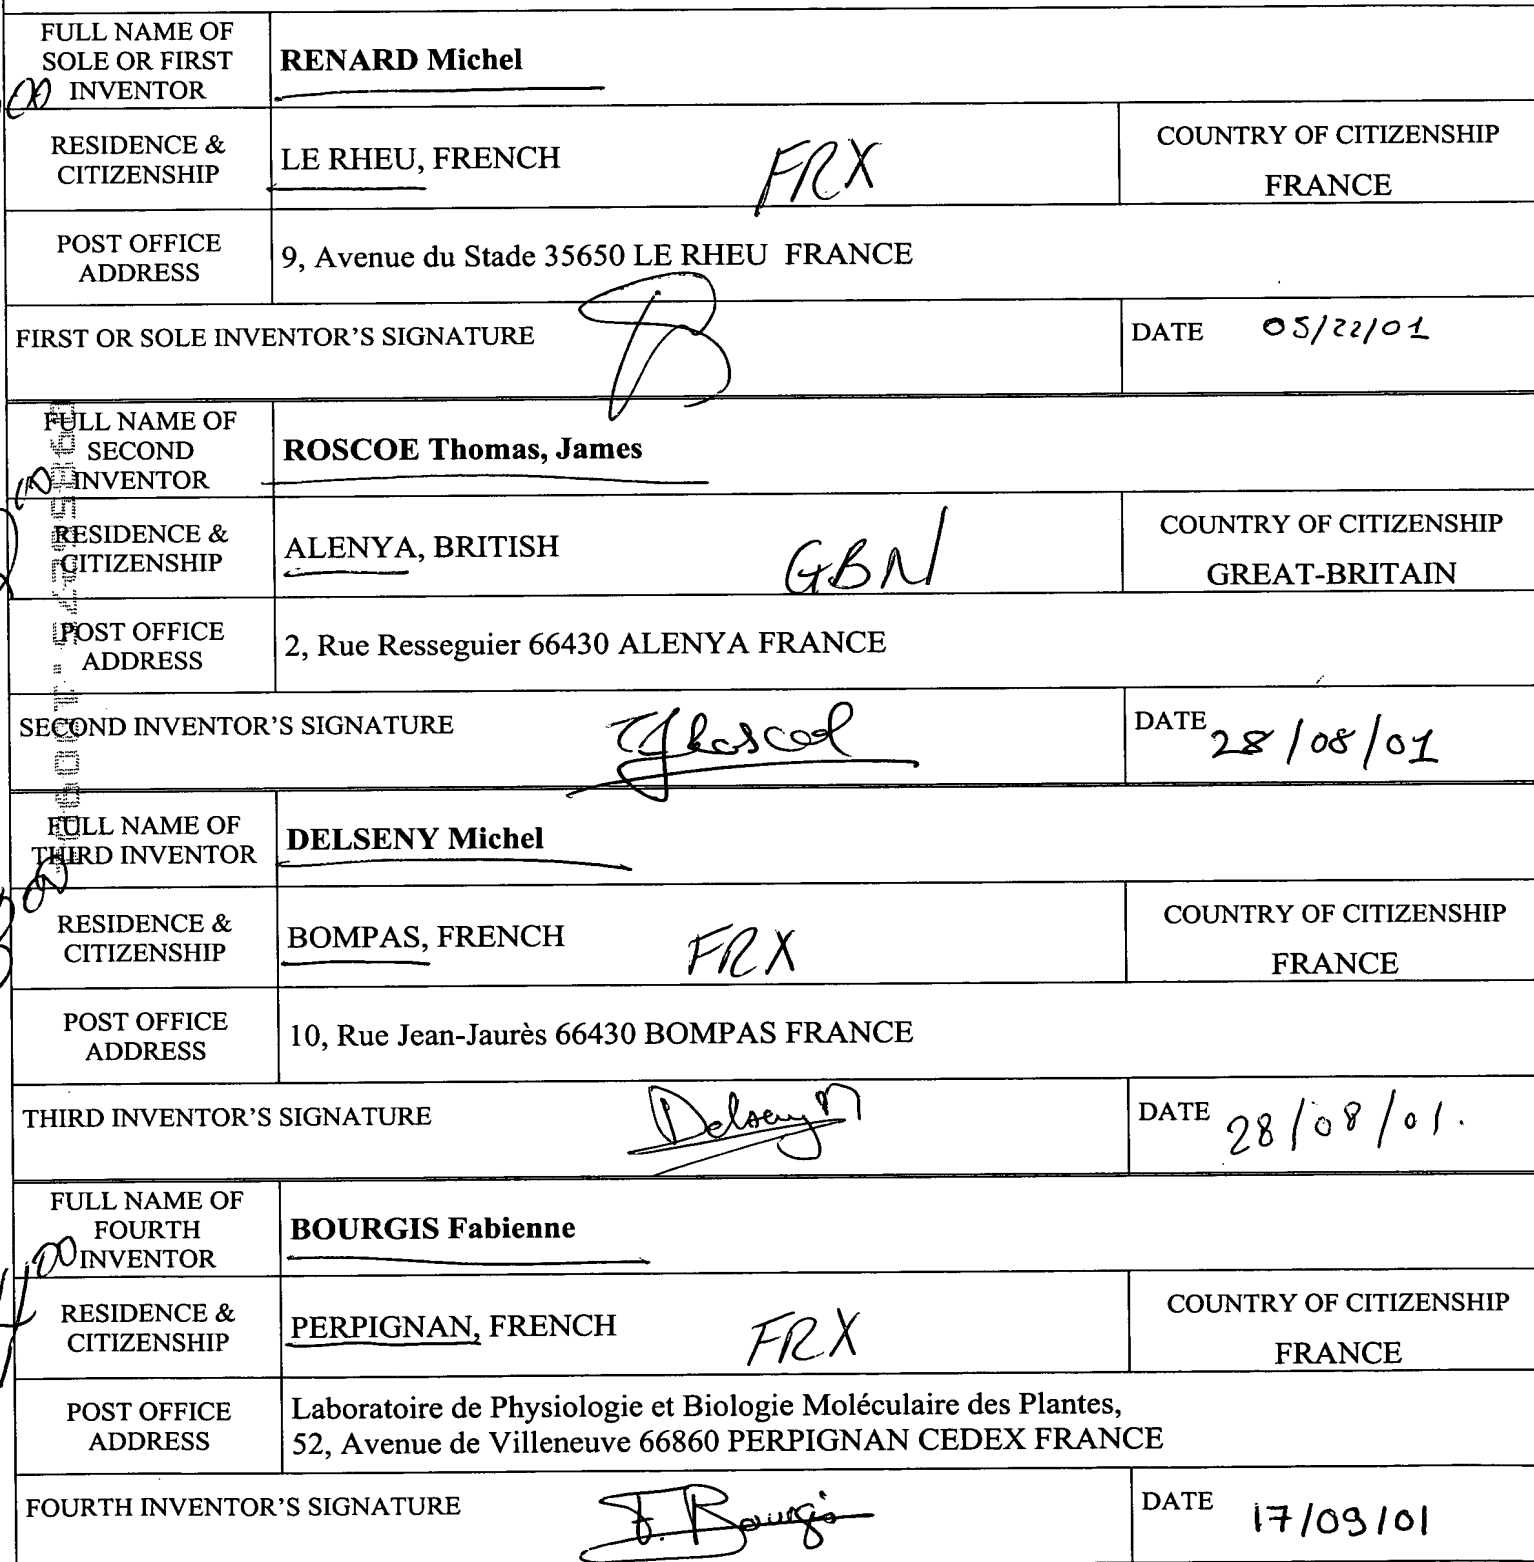 FULL NAME OF
SOLE OR FIRST
INVENTOR
RENARD Michel
RESIDENCE &
CITIZENSHIP
LE RHEU, FRENCH
FRX
COUNTRY OF CITIZENSHIP
FRANCE
POST OFFICE
ADDRESS
9, Avenue du Stade 35650 LE RHEU FRANCE
FIRST OR SOLE INVENTOR'S SIGNATURE
DATE 05/22/01
FULL NAME OF
SECOND
INVENTOR
ROSCOE Thomas, James
RESIDENCE &
CITIZENSHIP
ALENYA, BRITISH
GBN
COUNTRY OF CITIZENSHIP
GREAT-BRITAIN
POST OFFICE
ADDRESS
2, Rue Resseguier 66430 ALENYA FRANCE
SECOND INVENTOR'S SIGNATURE
TJRoscoe
DATE 28/08/01
FULL NAME OF
THIRD INVENTOR
DELSENY Michel
RESIDENCE &
CITIZENSHIP
BOMPAS, FRENCH
FRX
COUNTRY OF CITIZENSHIP
FRANCE
POST OFFICE
ADDRESS
10, Rue Jean-Jaurès 66430 BOMPAS FRANCE
THIRD INVENTOR'S SIGNATURE
Delseny M
DATE 28/08/01.
FULL NAME OF
FOURTH
INVENTOR
BOURGIS Fabienne
RESIDENCE &
CITIZENSHIP
PERPIGNAN, FRENCH
FRX
COUNTRY OF CITIZENSHIP
FRANCE
POST OFFICE
ADDRESS
Laboratoire de Physiologie et Biologie Moléculaire des Plantes,
52, Avenue de Villeneuve 66860 PERPIGNAN CEDEX FRANCE
FOURTH INVENTOR'S SIGNATURE
F. Bourgis
DATE 17/09/01